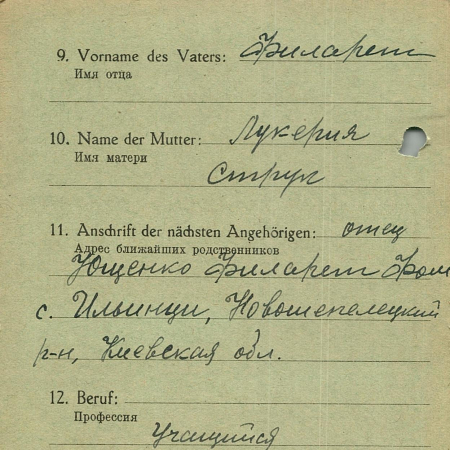 9. Vorname des Vaters: Филарет
Имя отца
10. Name der Mutter: Лукерия
Имя матери
Струк
11. Anschrift der nächsten Angehörigen: отец
Адрес ближайших родственников
Ющенко Филарет Фом
с. Ильинци, Новошепелецкий
р-н, Киевская обл.
12. Beruf:
Профессия
Учащийся